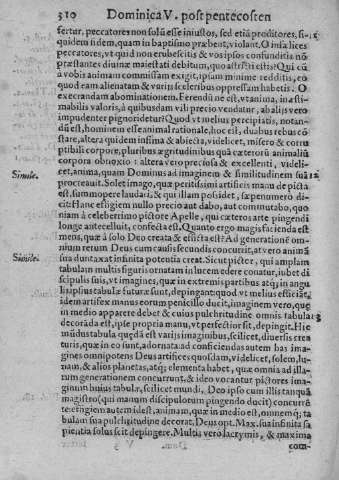 310 Dominica V. post pentecosten
fertur, peccatores non solũ esse iniustos, sed etiã proditores, si-
quidem fidem, quam in baptismo præbent, violant. O infælices
peccatores, vt quid non erubescitis & vos ipsos confundistis nõ
præstantes diuinæ maiestati debitum, quo astricti estis? Qui cũ
à vobis animam commissam exigit, ipsam minime redditis, eo
quod eam alienatam & varijs sceleribus oppressam habetis. O
execrandam abominationem. Ferendũ ne est, vt anima, inæsti-
mabilis valoris, à quibusdam vili precio vendatur, ab alijs vero
impudenter pignoridetur? Quod vt melius percipiatis, notan-
dũ est, hominem esse animal rationale, hoc est, duabus rebus cõ
stare, altera quidem infima & abiecta, videlicet, misero & corru
ptibili corpore, pluribus ægritudinibus quã cæterorũ animaliũ
corpora obnoxio: altera vero preciosa & excellenti, videli-
cet, anima, quam Dominus ad imaginem & similitudinem suã
Simile. procreauit. Solet imago, quæ peritissimi artificis manu depicta
est, summopere laudari, & qui illam possidet, sæpenumero di-
cit Hanc effigiem nullo precio aut dabo, aut commutabo, quo
niam à celeberrimo pictore Apelle, qui cæteros arte pingendi
longe antecelluit, confecta est. Quanto ergo magis facienda est
mens, quæ à solo Deo creata & efficta est? Ad generationẽ om-
nium rerum Deus cum causis secundis concurrit, at vero animã
Simile. sua duntaxat infinita potentia creat. Sicut pictor, qui amplam
tabulam multis figuris ornatam in lucem edere conatur, iubet di
scipulis suis, vt imagines, quæ in extremis partibus atq; in angu
lis ipsius tabulæ futuræ sunt, depingant: quod vt melius efficiãt,
idem artifex manus eorum penicillo ducit, imaginem vero, quæ
in medio apparere debet & cuius pulchritudine omnis tabula
decorãda est, ipse propria manu, vt perfectior sit, depingit. Hic
mũdus tabula quędã est varijs imaginibus, scilicet, diuersis crea
turis, quæ in eo sunt, adornata ad conficiendas autem has ima-
gines omnipotens Deus artifices quosdam, videlicet, solem, lu-
nam, & alios planetas, atq; elementa habet, quæ omnia ad illa-
rum generationem concurrunt, & ideo vocantur pictores ima-
ginum huius tabulæ, scilicet mundi, Deo ipso cum illis tanquã
magistro (qui manum discipulorum pingendo ducit) concurrẽ
te effigiem autem idest, animam, quæ in medio est, nonem q; ta
bulam sua pulchritudine decorat, Deus opt. Max. sua infinita sa
pientia solus scit depingere. Multis vero lacrymis, & maxima
com-